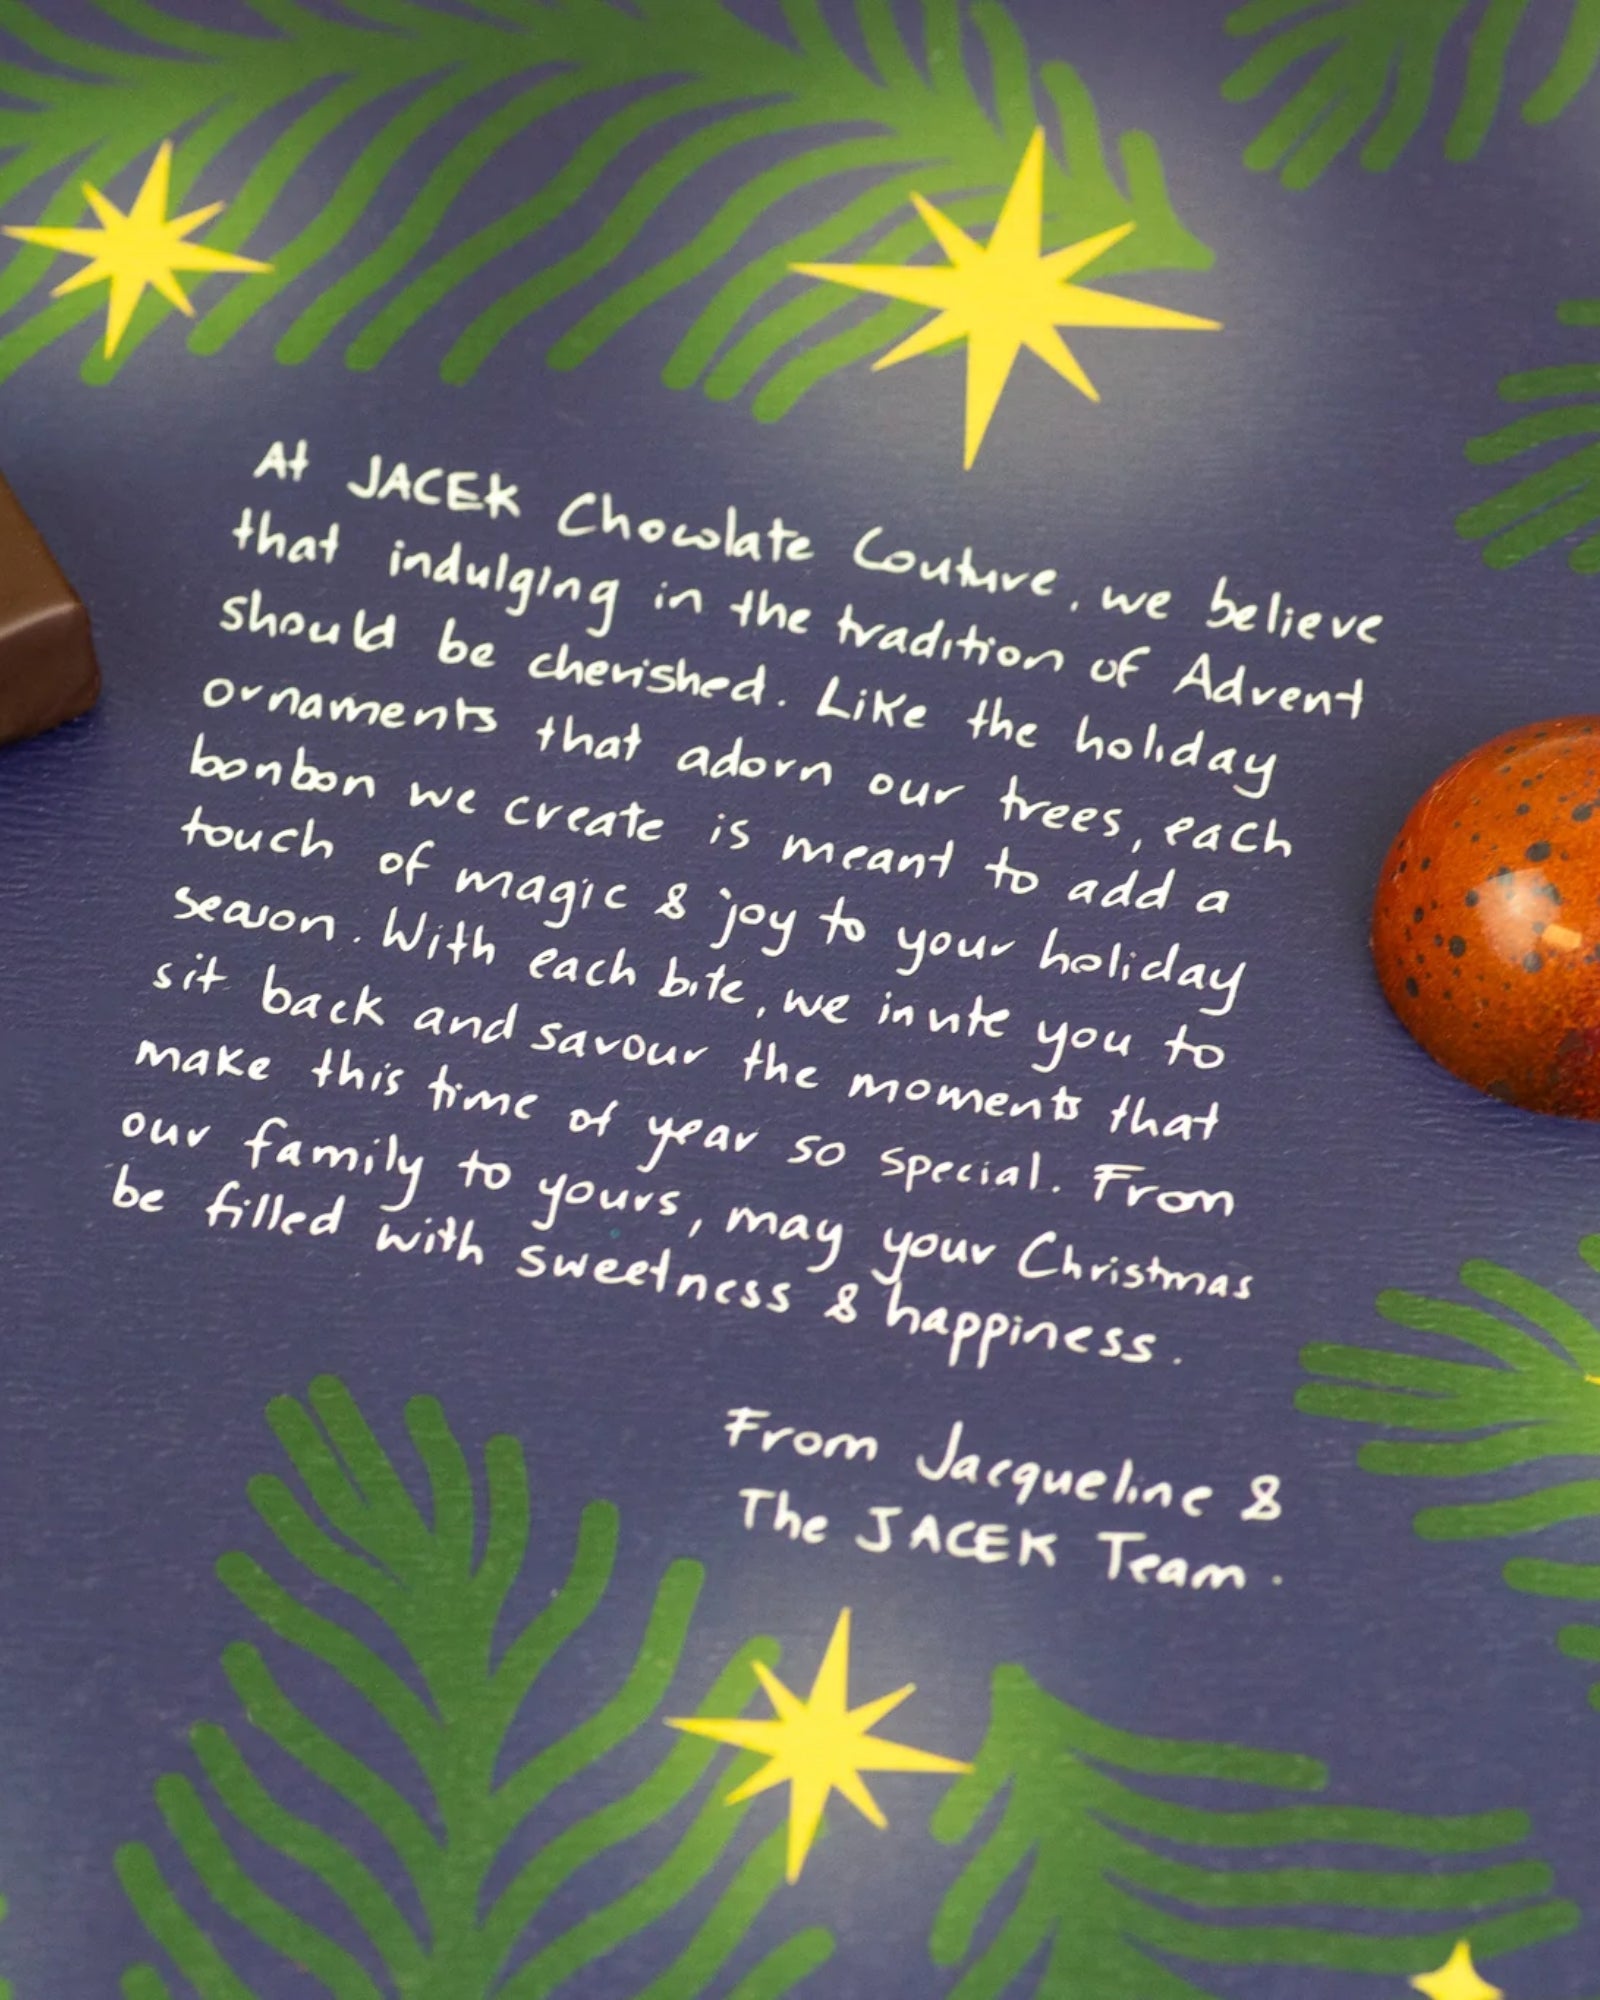 At JACEK Chocolate Couture, we believe
that indulging in the tradition of Advent
should be cherished. Like the holiday
ornaments that adorn our trees, each
bonbon we create is meant to add a
touch of magic & joy to your holiday
season. With each bite, we invite you to
sit back and savour the moments that
make this time of year so special. From
our family to yours, may your Christmas
be filled with sweetness & happiness.
From Jacqueline &
The JACEK Team.